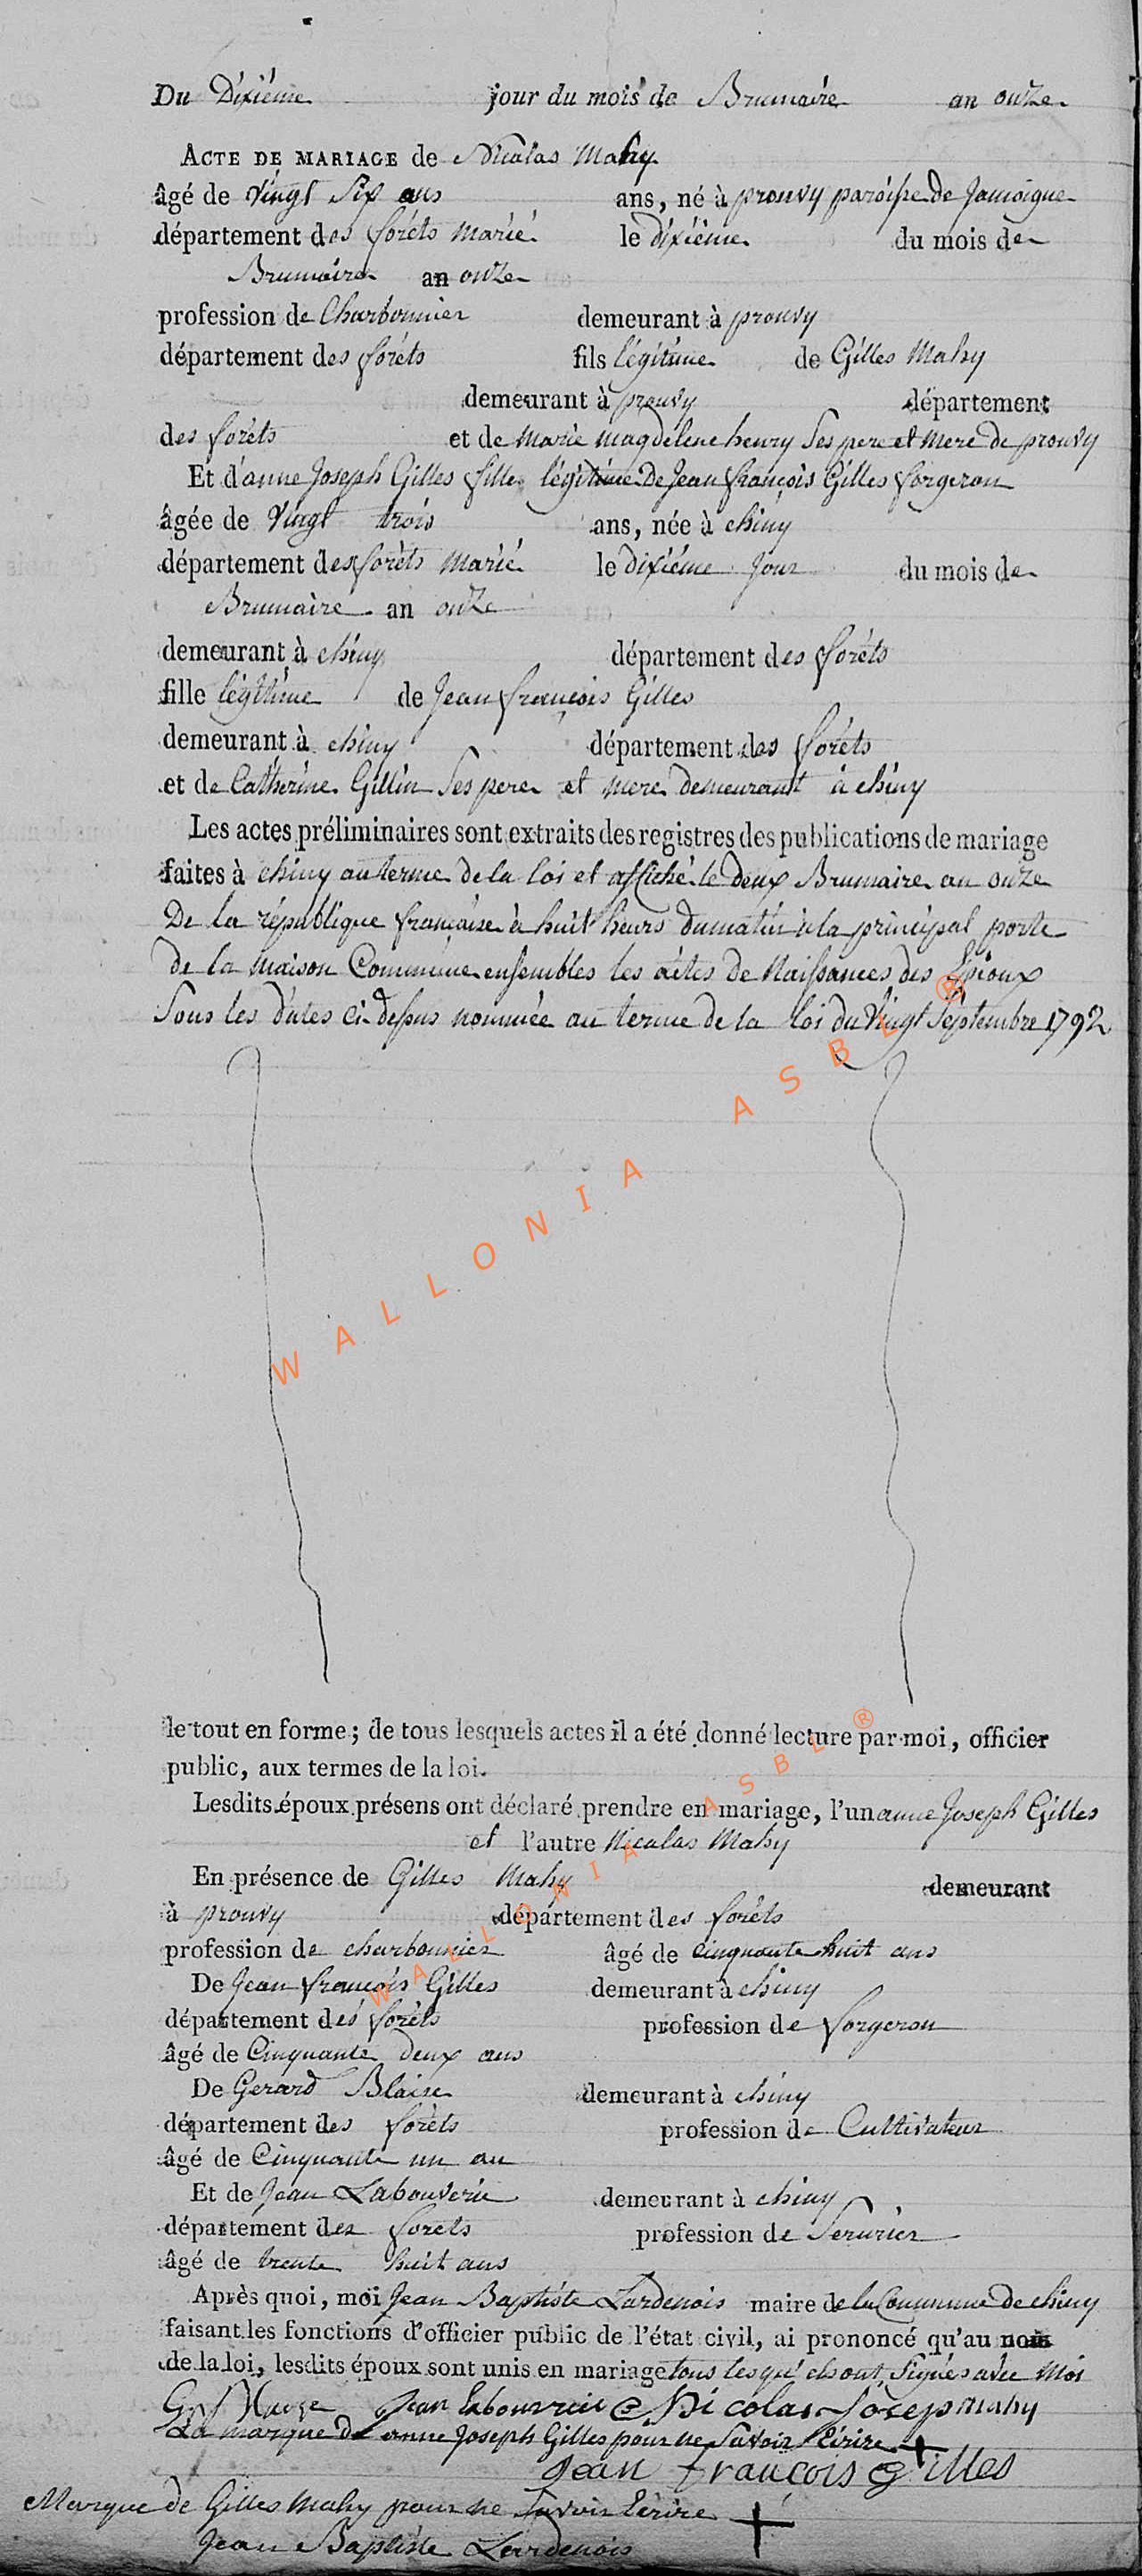 Du Dixiéme jour du mois de Brumaire an onze
ACTE DE MARIAGE de Nicolas Mahy
âgé de vingt Six ans ans, né à prouvy paroisse de Jamoigne
département des foréts Marié le dixiéme du mois de
Brumaire an onze
profession de Charbonnier demeurant à prouvy
département des foréts fils légitime de Gilles Mahy
demeurant à prouvy département
des foréts et de Marie magdelene henry Ses pere et Mere de prouvy
Et d'anne Joseph Gilles fille légitime De Jean françois Gilles forgeron
âgée de Vingt trois ans, née à chiny
département des foréts Marié le dixiéme Jour du mois de
Brumaire an onze
demeurant à chiny département des foréts
fille légitime de Jean françois Gilles
demeurant à chiny département des foréts
et de Catherine Gillin Ses pere et mere demeurant à chiny
Les actes préliminaires sont extraits des registres des publications de mariage
faites à chiny au terme de la loi et affiché le deux Brumaire an onze
De la république française à huit heurs du matin à la principal porte
de la Maison Commune ensembles les actes de Naissances des Epoux
Sous les dates ci-dessus nommée au terme de la loi du Vingt Septembre 1792
WALLONIA ASBL ®
le tout en forme; de tous lesquels actes il a été donné lecture par moi, officier
public, aux termes de la loi.
Lesdits époux présens ont déclaré prendre en mariage, l'un anne Joseph Gilles
et l'autre Nicolas Mahy
En présence de Gilles Mahy demeurant
à prouvy département des foréts
profession de charbonnier âgé de cinquante huit ans
De Jean françois Gilles demeurant à chiny
département des foréts profession de forgeron
âgé de Cinquante deux ans
De Gerard Blaise demeurant à chiny
département des foréts profession de Cultivateur
âgé de Cinquante un an
Et de Jean Labouverie demeurant à chiny
département des forets profession de Serurier
âgé de trente huit ans
WALLONIA ASBL ®
Après quoi, moi Jean Baptiste Lardenois maire de la Commune de chiny
faisant les fonctions d'officier public de l'état civil, ai prononcé qu'au nom
de la loi, lesdits époux sont unis en mariage tous lesqu'els ont Signés avec Moi
Jean labouverie Nicolas Josep mahy
La marque de anne Joseph Gilles pour ne Savoir Ecrire +
Jean francois gilles
Marque de Gilles Mahy pour ne Savoir Ecrire +
Jean Baptiste Lardenois